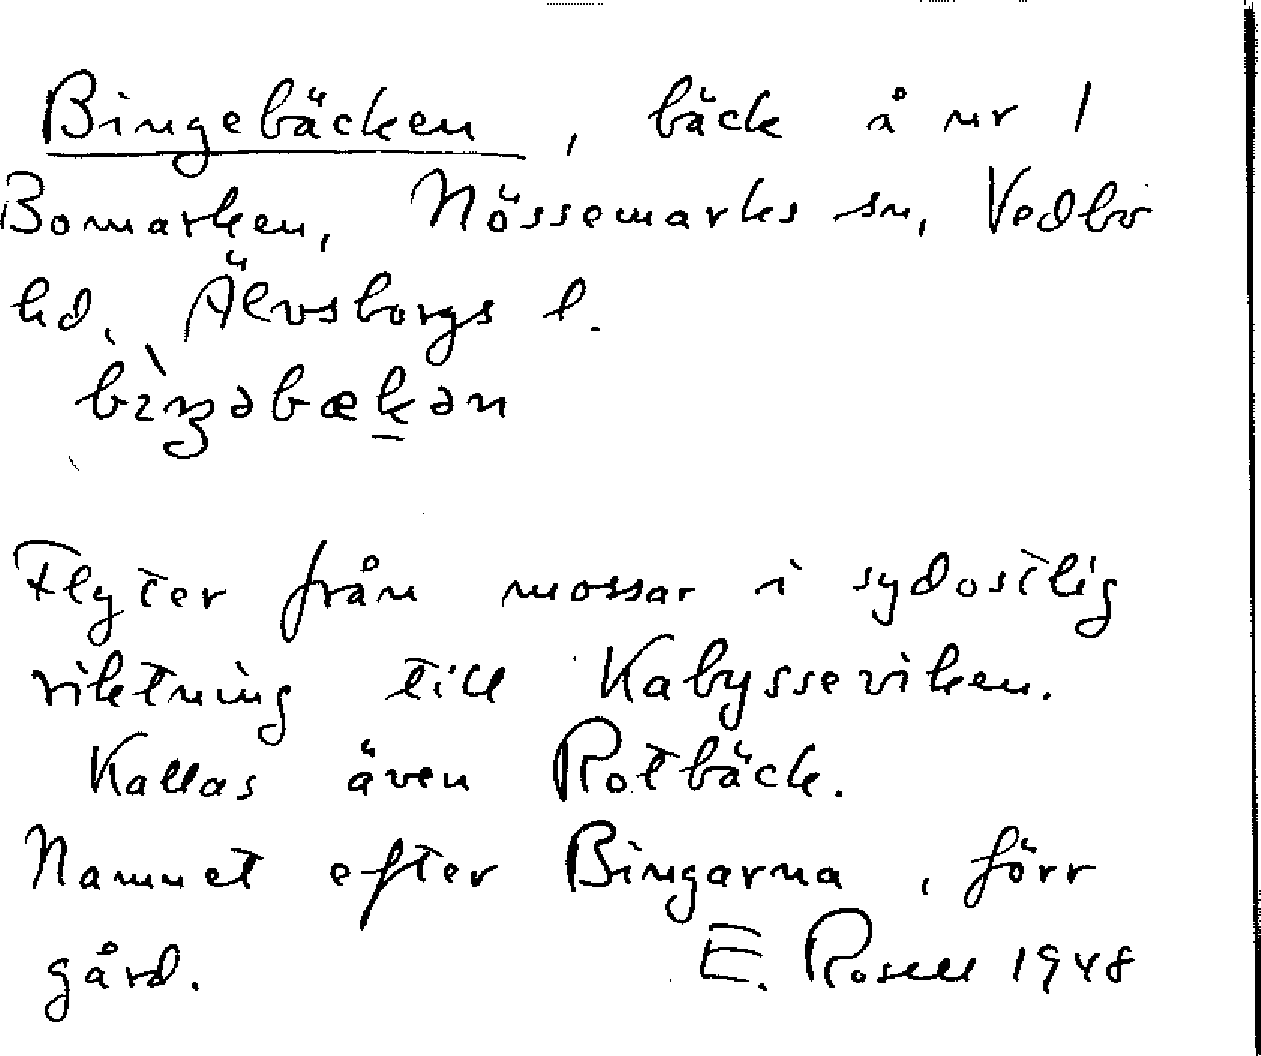 Bingebäcken, bäck å nr 1
Bomarken, Nössemarks sn, Vedbo
hd, Älvsborgs l.
bìŋəbækən
Flyter från mossar i sydostlig
riktning till Kabysseviken.
Kallas även Rotbäck.
Namnet efter Bingarna, förr
gård. E. Rosell 1948